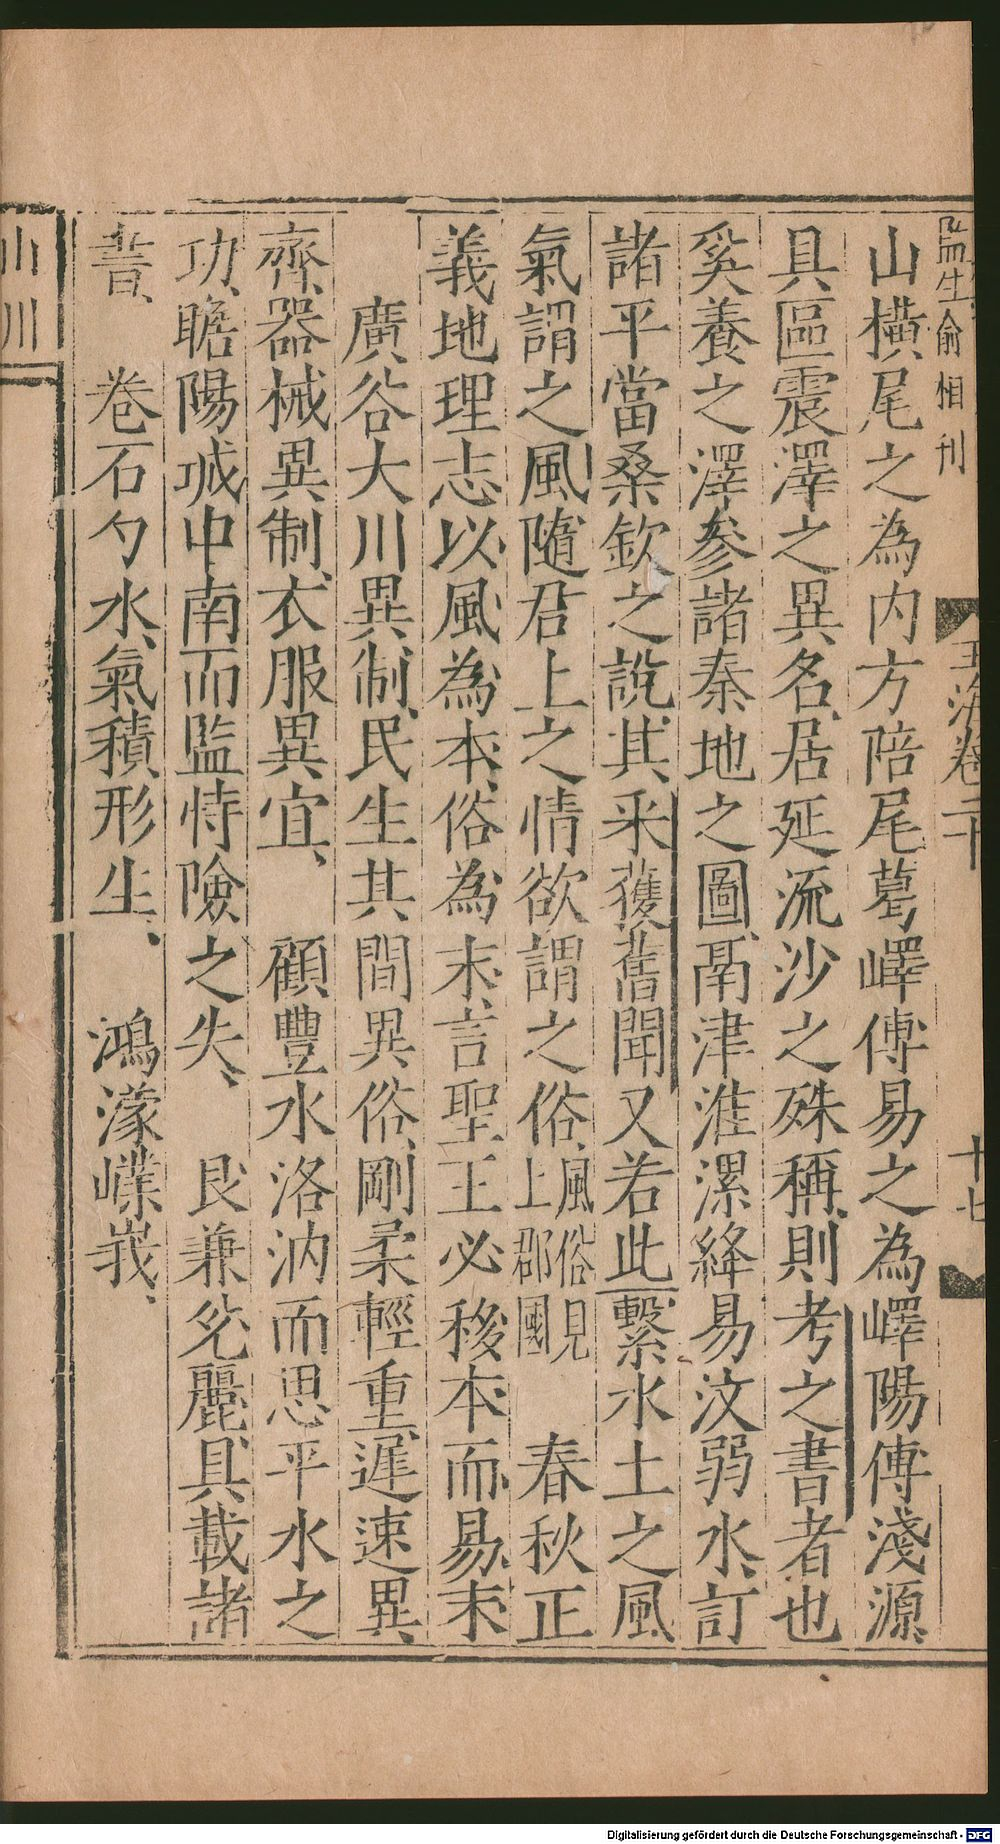 監生俞相刊
玉海卷二十
十七
山橫尾之為内方陪尾葛嶧傅昜之為嶧陽傅淺源
具區震澤之異名居延流沙之殊稱則考之書者也
奚養之澤參諸秦地之圖鬲津淮漯絳易汶弱水訂
諸平當桑欽之說其采獲舊聞又若此繫水土之風
氣謂之風隨君上之情欲謂之俗風俗見上郡國 春秋正
義地理志以風為本俗為末言聖王必移本而易末
廣谷大川異制民生其間異俗剛柔輕重遲速異
齊器械異制衣服異宜 顧豐水洛汭而思平水之
功瞻陽城中南而監恃險之失 艮兼兊麗具載諸
書 卷石勺水氣積形生 鴻濛㠔峩
山川
Digitalisierung gefördert durch die Deutsche Forschungsgemeinschaft - DFG